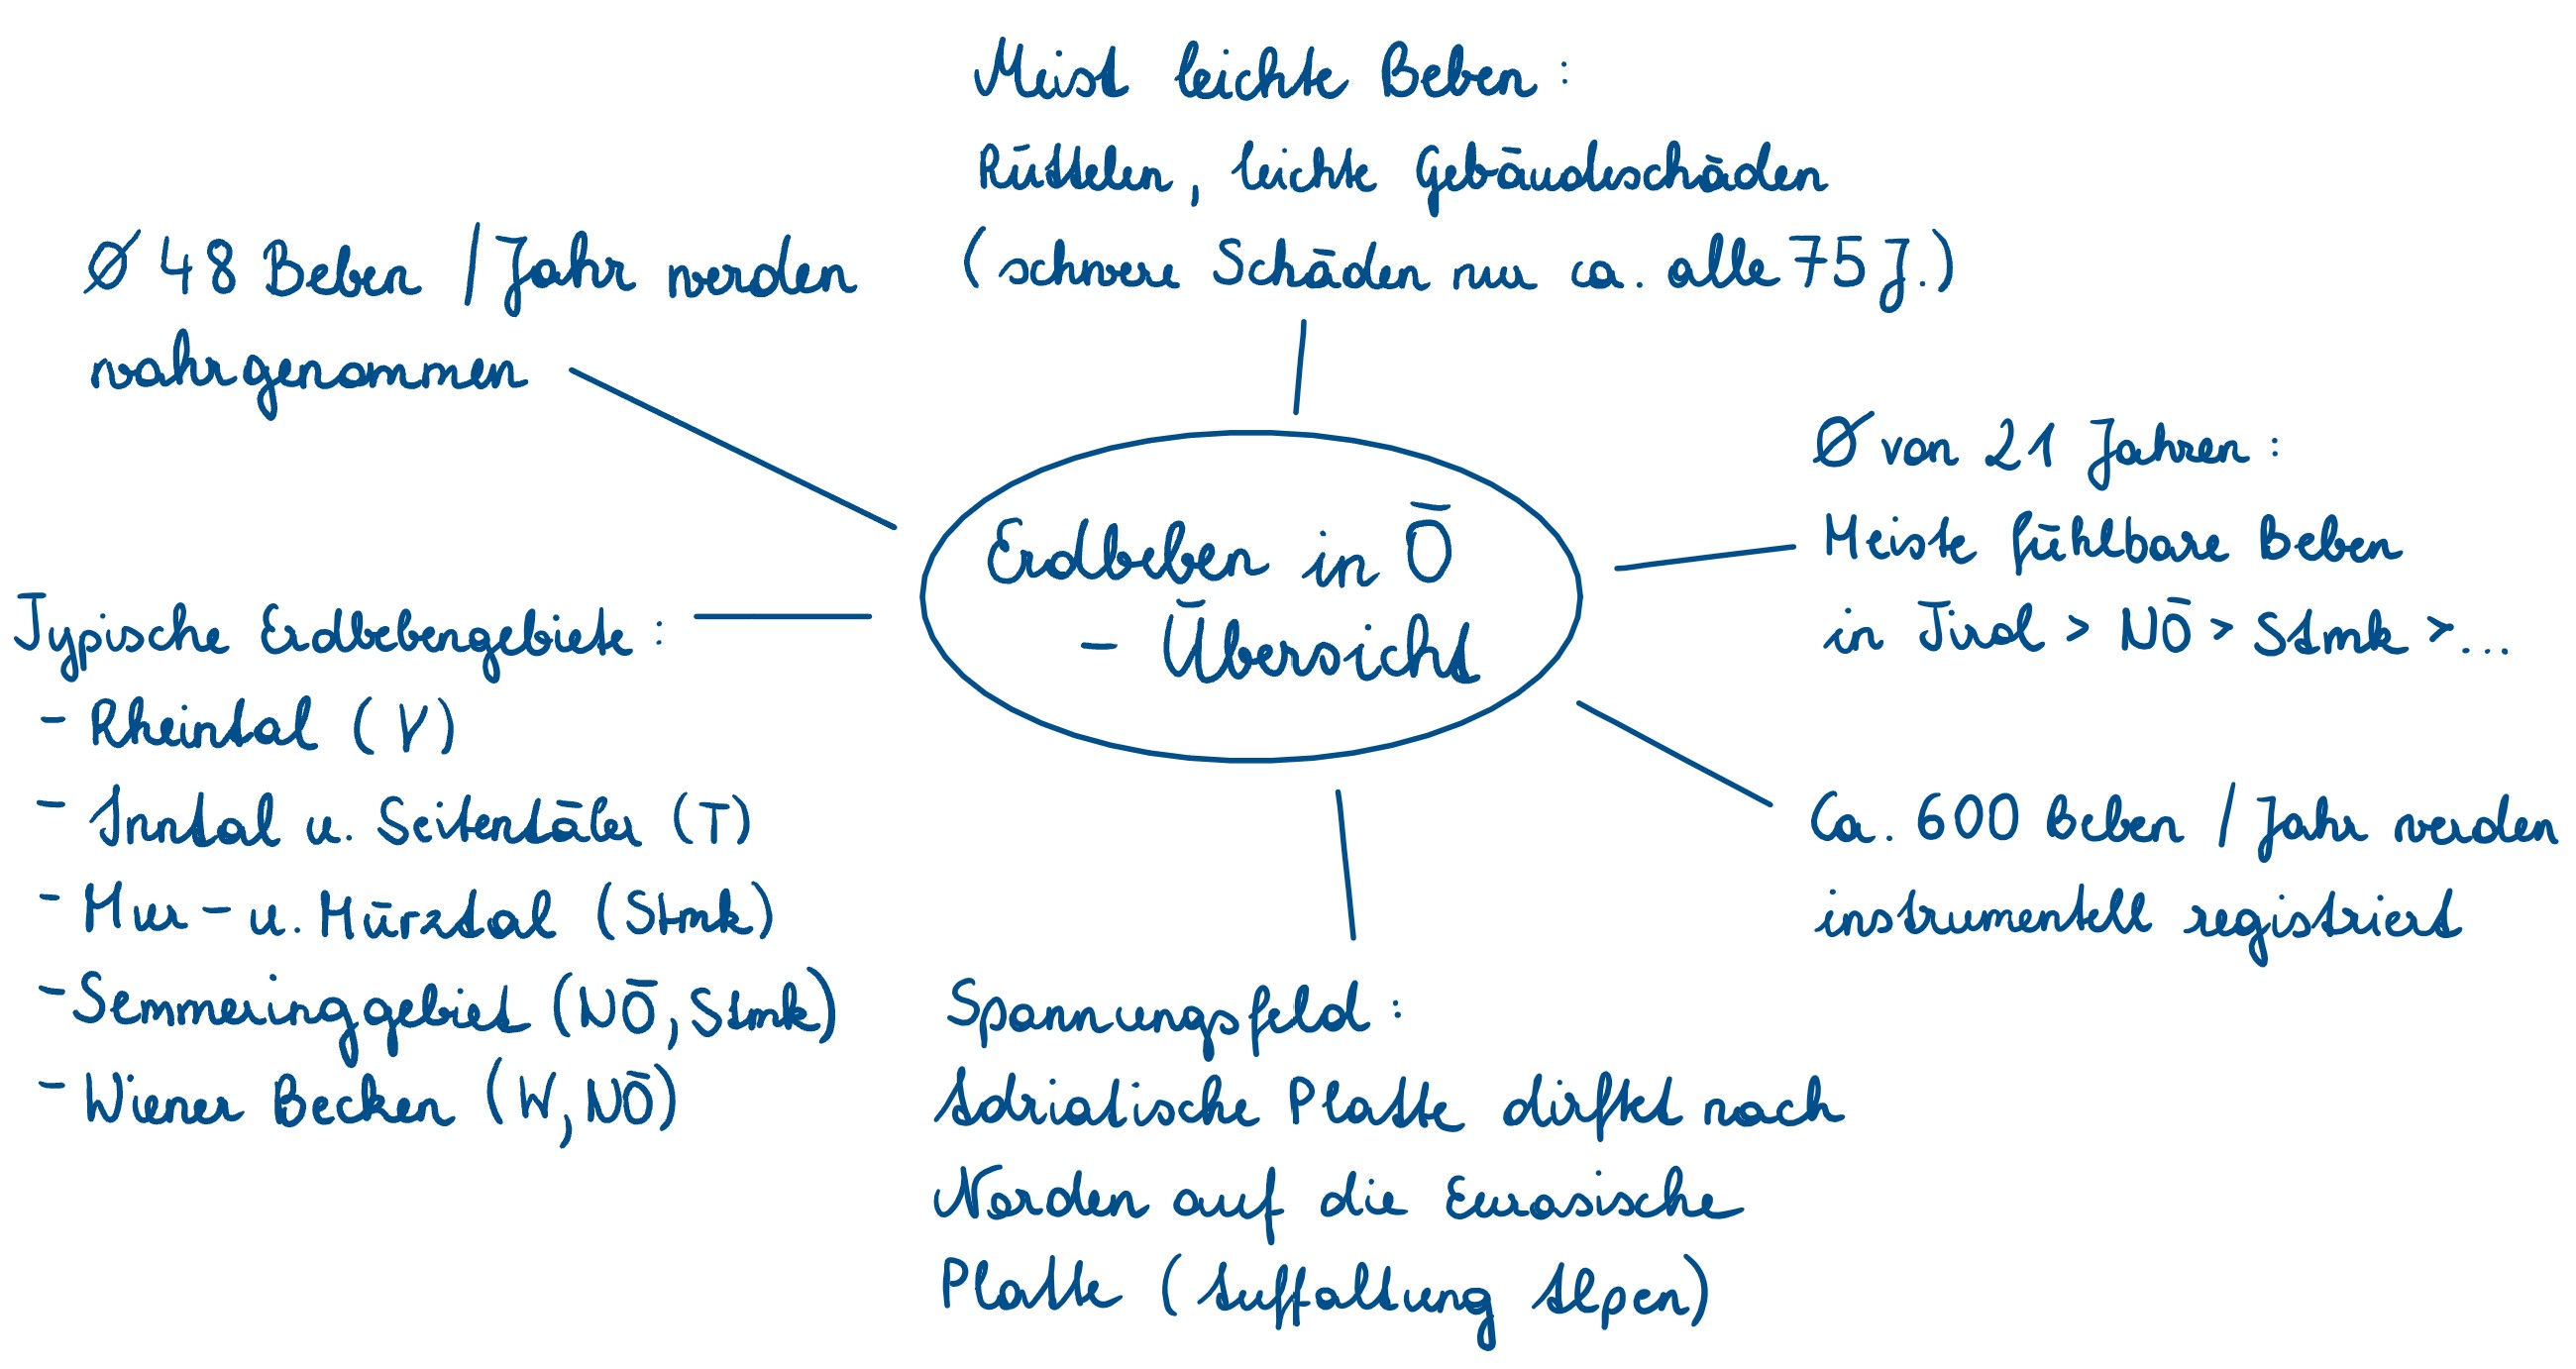 Meist leichte Beben:
Rüttelen, leichte Gebäudeschäden
(schwere Schäden nur ca. alle 75 J.)
Ø 48 Beben / Jahr werden
wahrgenommen
Ø von 21 Jahren:
Meiste fühlbare Beben
in Tirol > NÖ > Stmk >...
Erdbeben in Ö
- Übersicht
Typische Erdbebengebiete:
- Rheintal (V)
- Inntal u. Seitentäler (T)
- Mur- u. Mürztal (Stmk)
- Semmeringgebiet (NÖ, Stmk)
- Wiener Becken (W, NÖ)
Ca. 600 Beben / Jahr werden
instrumentell registriert
Spannungsfeld:
Adriatische Platte dirftet nach
Norden auf die Eurasische
Platte (Auffaltung Alpen)